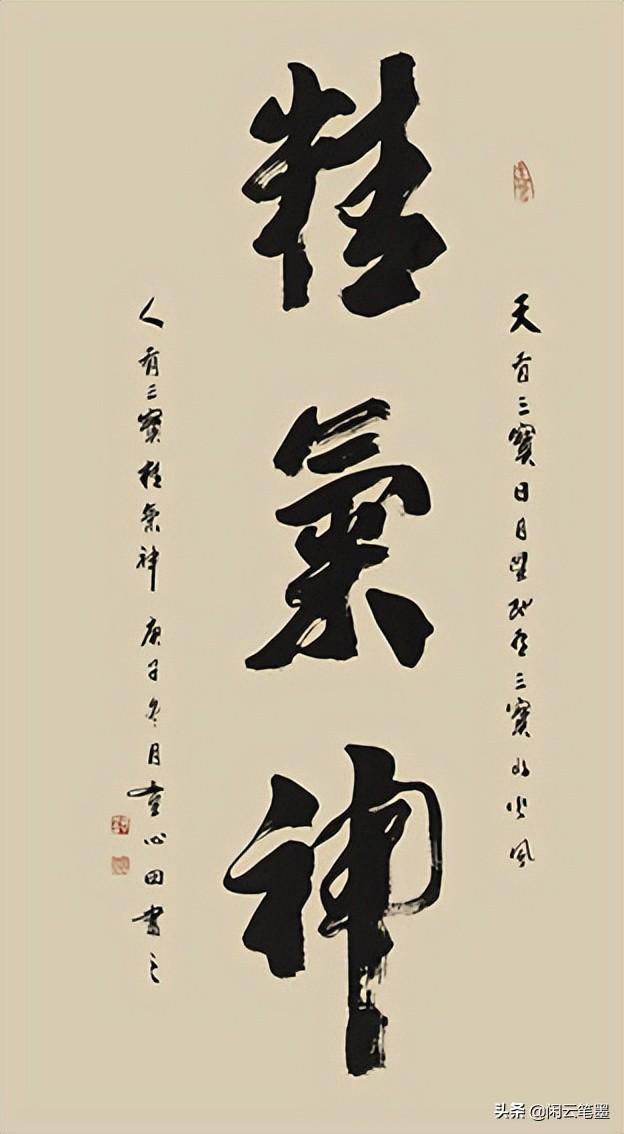 天有三寶日月星地有三寶水火風
精氣神
人有三寶精氣神 庚子冬月童心田書之
头条 @闲云笔墨